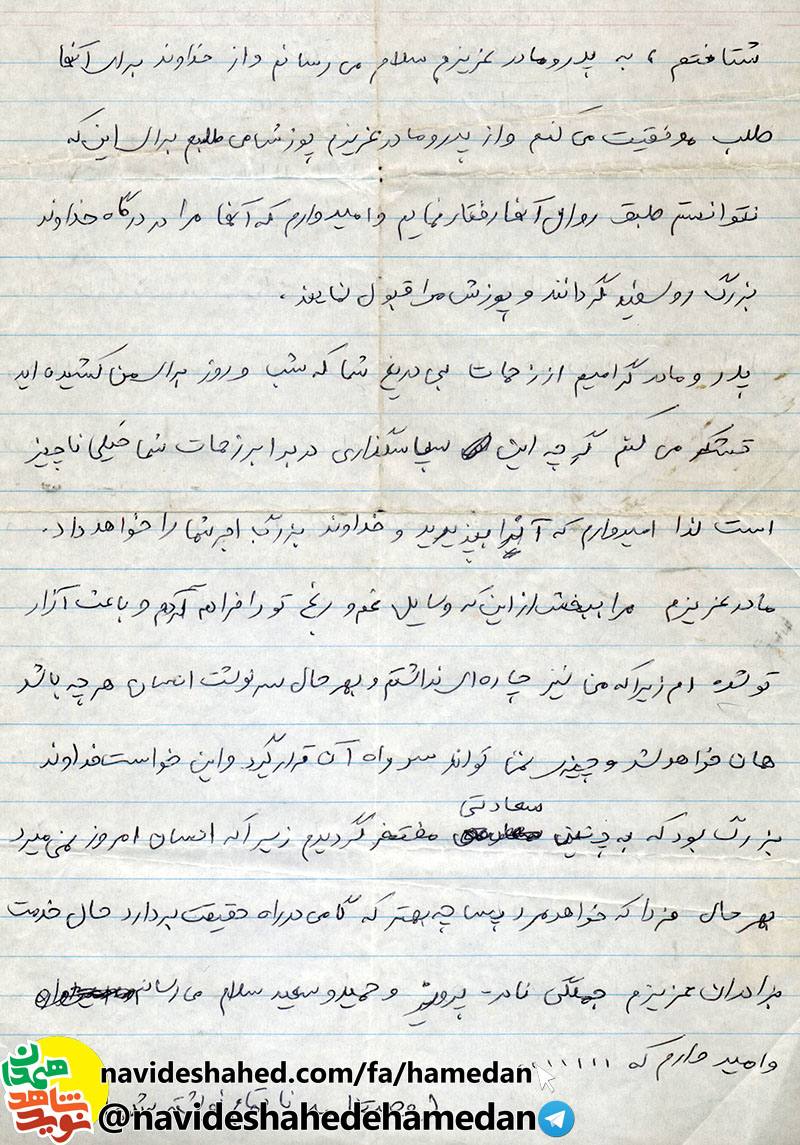 شتافتم ، به پدر و مادر عزیزم سلام می رسانم و از خداوند برای آنها
طلب موفقیت می کنم و از پدر و مادر عزیزم پوزش می طلبم برای این که
نتوانستم طبق روال آنها رفتار نمایم و امیدوارم که آنها مرا در درگاه خداوند
بزرگ روسفید گردانند و پوزش مرا قبول نمایند .
پدر و مادر گرامیم از زحمات بی دریغ شما که شب و روز برای من کشیده اید
تشکر می کنم گرچه این سپاسگذاری در برابر زحمات شما خیلی ناچیز
است لذا امیدوارم که آنرا بپذیرید و خداوند بزرگ اجر شما را خواهد داد .
مادر عزیزم مرا ببخش از این که وسایل غم و رنج تو را فراهم کردم و باعث آزار
تو شده ام زیرا که من نیز چاره ای نداشتم و بهر حال سرنوشت انسان هر چه باشد
همان خواهد شد و چیزی نمی تواند سر راه آن قرار گیرد و این خواست خداوند
بزرگ بود که به چنین سعادتی مفتخر گردیدم زیرا که انسان امروز نمیرد
بهر حال فردا که خواهد مرد پس چه بهتر که گامی در راه حقیقت بردارد حال خدمت
برادران عزیزم جملگی نادر - پرویز و حمید و سعید سلام می رسانم
و امیدوارم که ،،،،،،
navideshahed.com/fa/hamedan
@navideshahedehamedan
نوید شاهد همدان